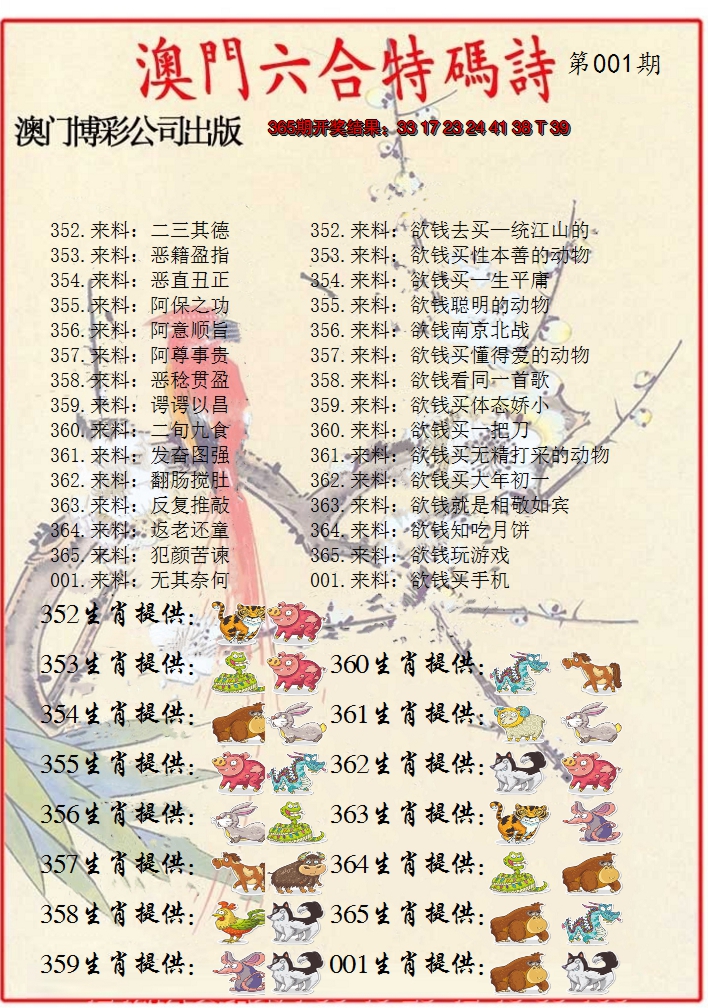 澳門六合特碼詩 第001期
澳门博彩公司出版 365期开奖结果：33 17 23 24 41 38 T 39
352.来料：二三其德 352.来料：欲钱去买一统江山的
353.来料：恶籍盈指 353.来料：欲钱买性本善的动物
354.来料：恶直丑正 354.来料：欲钱买一生平庸
355.来料：阿保之功 355.来料：欲钱聪明的动物
356.来料：阿意顺旨 356.来料：欲钱南京北战
357.来料：阿尊事贵 357.来料：欲钱买懂得爱的动物
358.来料：恶稔贯盈 358.来料：欲钱看同一首歌
359.来料：谔谔以昌 359.来料：欲钱买体态娇小
360.来料：二旬九食 360.来料：欲钱买一把刀
361.来料：发奋图强 361.来料：欲钱买无精打采的动物
362.来料：翻肠搅肚 362.来料：欲钱买大年初一
363.来料：反复推敲 363.来料：欲钱就是相敬如宾
364.来料：返老还童 364.来料：欲钱知吃月饼
365.来料：犯颜苦谏 365.来料：欲钱玩游戏
001.来料：无其奈何 001.来料：欲钱买手机
352生肖提供：
353生肖提供： 360生肖提供：
354生肖提供： 361生肖提供：
355生肖提供： 362生肖提供：
356生肖提供： 363生肖提供：
357生肖提供： 364生肖提供：
358生肖提供： 365生肖提供：
359生肖提供： 001生肖提供：